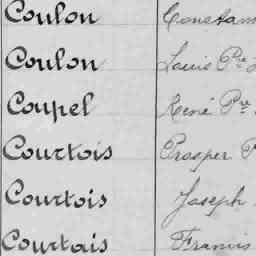 Coulon Constan
Coulon Louis Pre
Coupel René Pre
Courtois Prosper P
Courtois Joseph
Courtais Francis